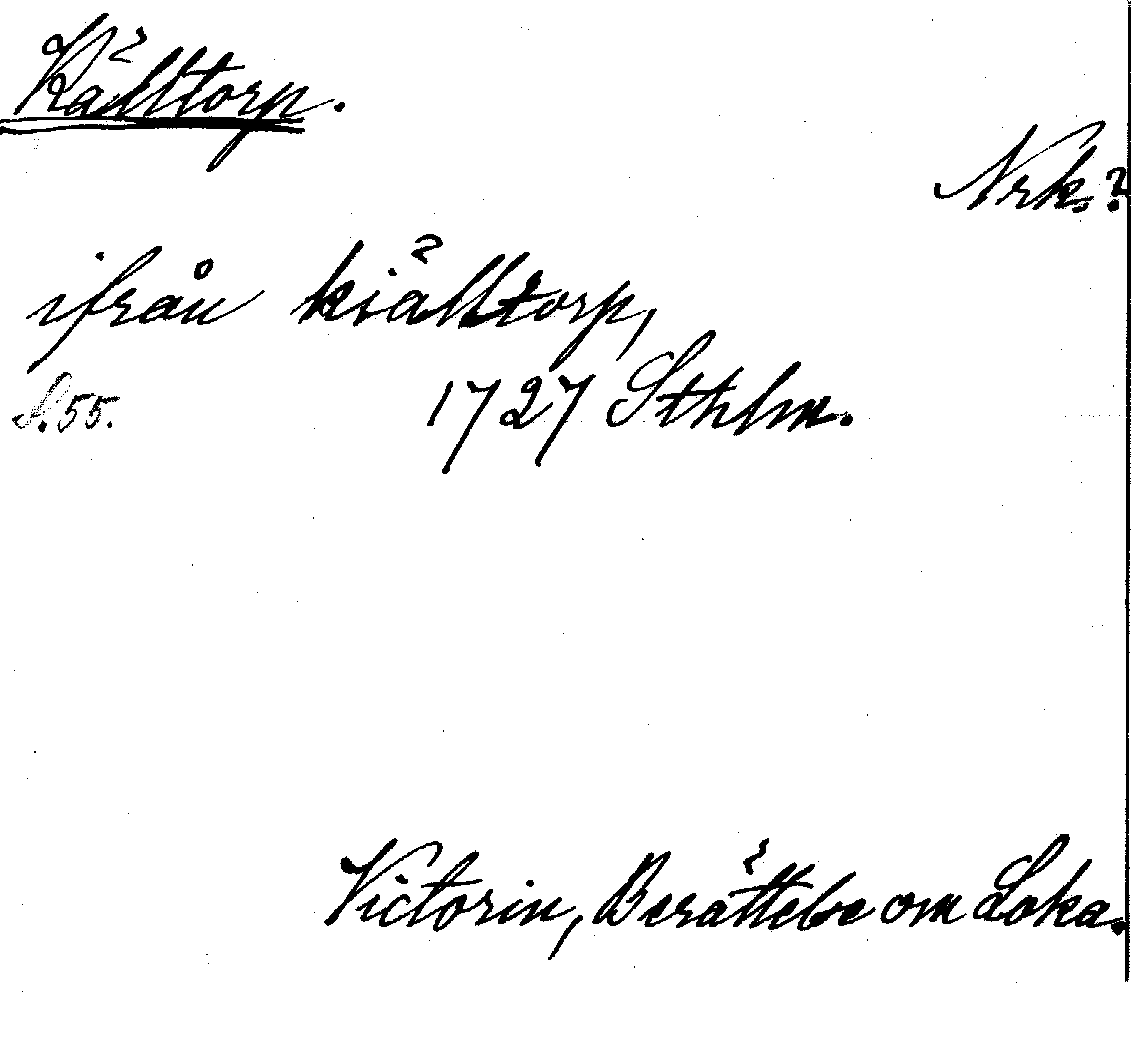 Källtorp.
Nrk.?
ifrån kiälltorp,
S. 55. 1727 Sthlm.
Victorin, Berättelse om Loka.